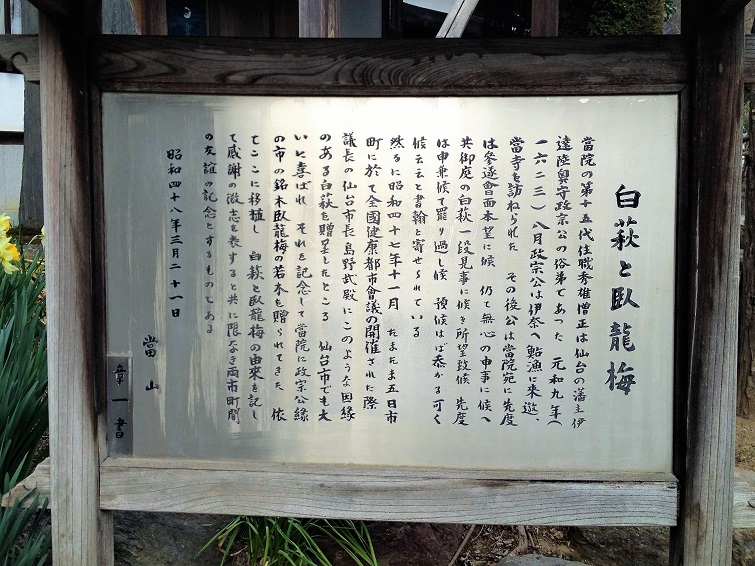 白萩と臥龍梅
當院の第十五代住職秀雄僧正は仙台の藩主伊
達陸奥守政宗公の俗弟であった 元和九年(
一六二三)八月政宗公は伊奈へ鮎漁に来遊、
當寺を訪ねられた その後公は當院宛に先度
は參遂會面本望に候 仍て無心の申事に候へ
共御庭の白萩一段見事に候を所望致候 先度
は申兼候て罷り過し候 預候はゞ忝かる可く
候云云と書翰を寄せられている
然るに昭和四十七年十一月 たまたま五日市
町に於て全国健康都市會議の開催された際
議長の仙台市長島野武殿にこのような因縁
のある白萩を贈呈したところ 仙台市でも大
いに喜ばれ それを記念して當院に政宗公縁
の市の銘木臥龍梅の若木を贈られてきた 依
てここに移植し 白萩と臥龍梅の由來を記し
て感謝の微志を表すると共に限なき両市町間
の友誼の記念とするものである
昭和四十八年三月二十一日
當山
章一書